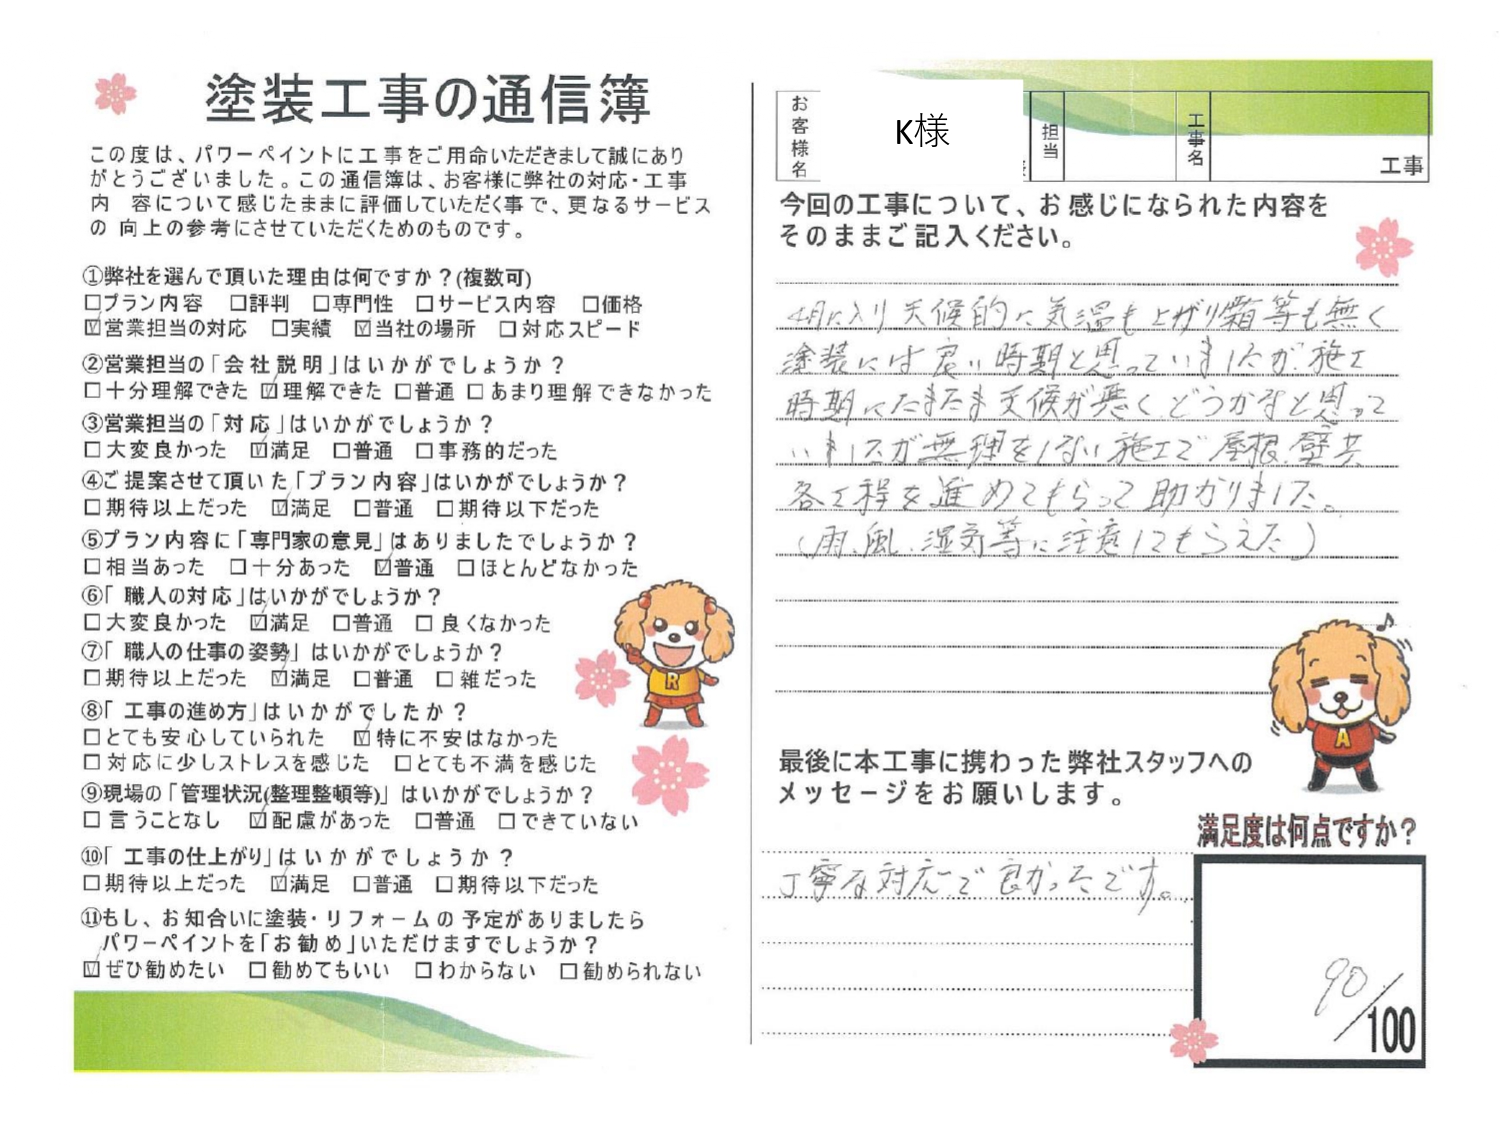 塗装工事の通信簿
この度は、パワーペイントに工事をご用命いただきまして誠にあり
がとうございました。この通信簿は、お客様に弊社の対応・工事
内 容について感じたままに評価していただく事で、更なるサービス
の 向上の参考にさせていただくためのものです。
①弊社を選んで頂いた理由は何ですか？(複数可)
□プラン内容 □評判 □専門性 □サービス内容 □価格
☑営業担当の対応 □実績 ☑当社の場所 □対応スピード
②営業担当の「会社説明」はいかがでしょうか？
□十分理解できた ☑理解できた □普通 □あまり理解できなかった
③営業担当の「対応」はいかがでしょうか？
□大変良かった ☑満足 □普通 □事務的だった
④ご提案させて頂いた「プラン内容」はいかがでしょうか？
□期待以上だった ☑満足 □普通 □期待以下だった
⑤プラン内容に「専門家の意見」はありましたでしょうか？
□相当あった □十分あった ☑普通 □ほとんどなかった
⑥「 職人の対応」はいかがでしょうか？
□大変良かった ☑満足 □普通 □良くなかった
⑦「 職人の仕事の姿勢」はいかがでしょうか？
□期待以上だった ☑満足 □普通 □雑だった
⑧「 工事の進め方」はいかがでしたか？
□とても安心していられた ☑特に不安はなかった
□対応に少しストレスを感じた □とても不満を感じた
⑨現場の「管理状況(整理整頓等)」はいかがでしょうか？
□言うことなし ☑配慮があった □普通 □できていない
⑩「 工事の仕上がり」はいかがでしょうか？
□期待以上だった ☑満足 □普通 □期待以下だった
⑪もし、お知合いに塗装・リフォームの予定がありましたら
パワーペイントを「お勧め」いただけますでしょうか？
☑ぜひ勧めたい □勧めてもいい □わからない □勧められない
R
お客様名 K様 担当 工事名 工事
今回の工事について、お感じになられた内容を
そのままご記入ください。
4月に入り天候的に気温も上がり霜等も無く
塗装には良い時期と思っていましたが、施工
時期にたまたま天候が悪くどうかなと思って
いましたが無理をしない施工で屋根、壁共
各工程を進めてもらって助かりました。
(雨、風、湿気等に注意してもらえた)
A
最後に本工事に携わった弊社スタッフへの
メッセージをお願いします。
丁寧な対応で良かったです。
満足度は何点ですか？
90/100